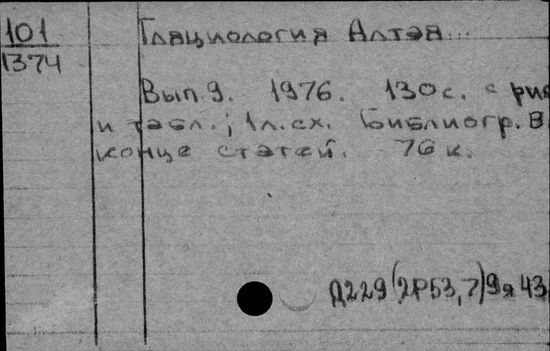 101
1374
Гляциология Алтая...
Вып. 9. 1976. 130 с. с рис
и табл.; 1 л. сх. Библиогр. в
конце статей. 76 к.
Д229(2Р53,7)9я43